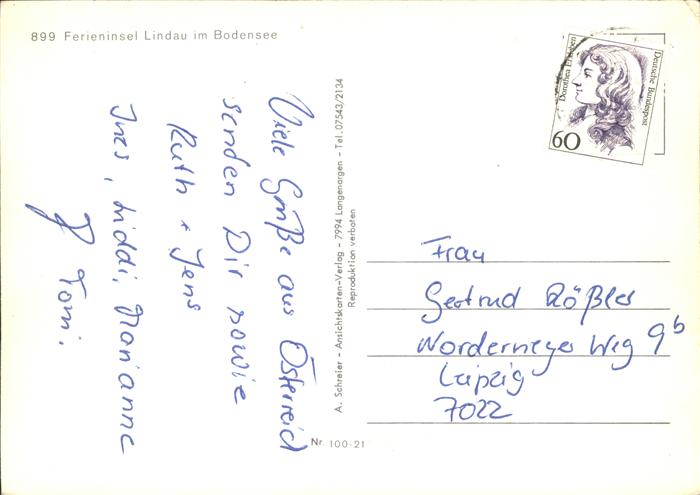 899 Ferieninsel Lindau im Bodensee
Viele Grüße aus Österreich
senden Dir sowie
Ruth + Jens
Ines, Liddi, Marianne
Tomi.
A. Schreier - Ansichtskarten-Verlag - 7994 Langenargen - Tel. 07543/2134
Reproduktion verboten
Nr. 100-21
Dorothea Erxleben
Deutsche Bundespost
60
Frau
Gertrud Rößler
Norderneyer Weg 9b
Leipzig
7022